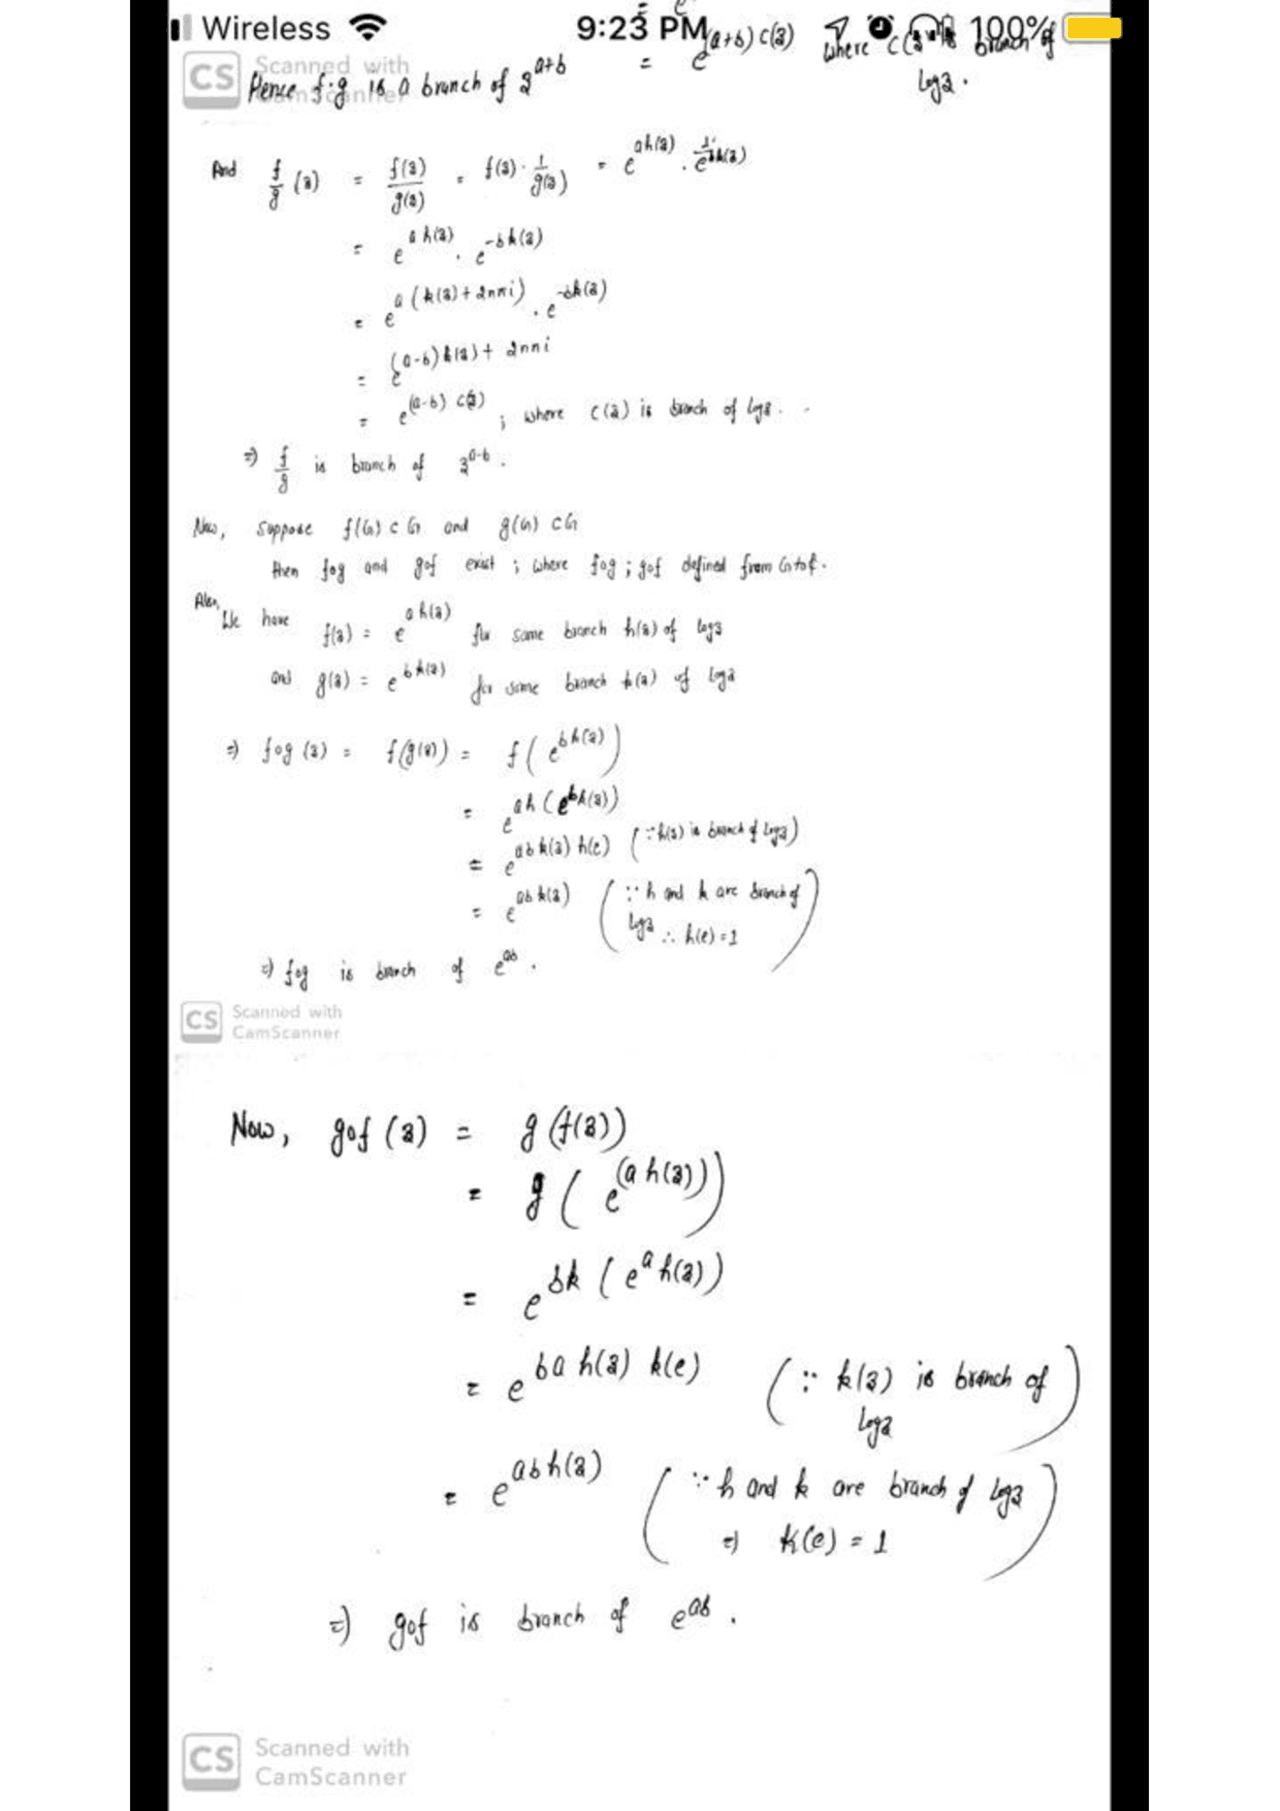 Wireless 9:23 PM 100%
= e^(a+b) c(z) where c(z) is branch of
Scanned with
CamScanner
CS
Hence f·g is a branch of z^a+b
log z .
And f/g (z) = f(z)/g(z) = f(z) · 1/g(z) = e^ah(z) · 1/e^bk(z)
= e^ah(z) . e^-bk(z)
= e^a(k(z)+2nπi) . e^-bk(z)
= e^(a-b)k(z)+2nπi
= e^(a-b) c(z) ; where c(z) is branch of log z .
=) f/g is branch of z^a-b .
Now, suppose f(G) ⊂ G and g(G) ⊂ G
then fog and gof exist ; where fog ; gof defined from G to ¢.
Also,
We have f(z) = e^ah(z) for some branch h(z) of log z
and g(z) = e^bk(z) for some branch k(z) of log z
=) fog (z) = f(g(z)) = f( e^bk(z) )
= e^ah(e^bk(z))
= e^abk(z) h(e) (∵ h(z) is branch of log z)
= e^abk(z) (∵ h and k are branch of
log z ∴ h(e) = 1)
=) fog is branch of e^ab .
CS Scanned with
CamScanner
Now, gof (z) = g(f(z))
= g( e^(ah(z)) )
= e^bk(e^a h(z))
= e^ba h(z) k(e) (∵ k(z) is branch of
log z)
= e^abh(z) (∵ h and k are branch of log z
=) k(e) = 1)
=) gof is branch of e^ab .
CS Scanned with
CamScanner